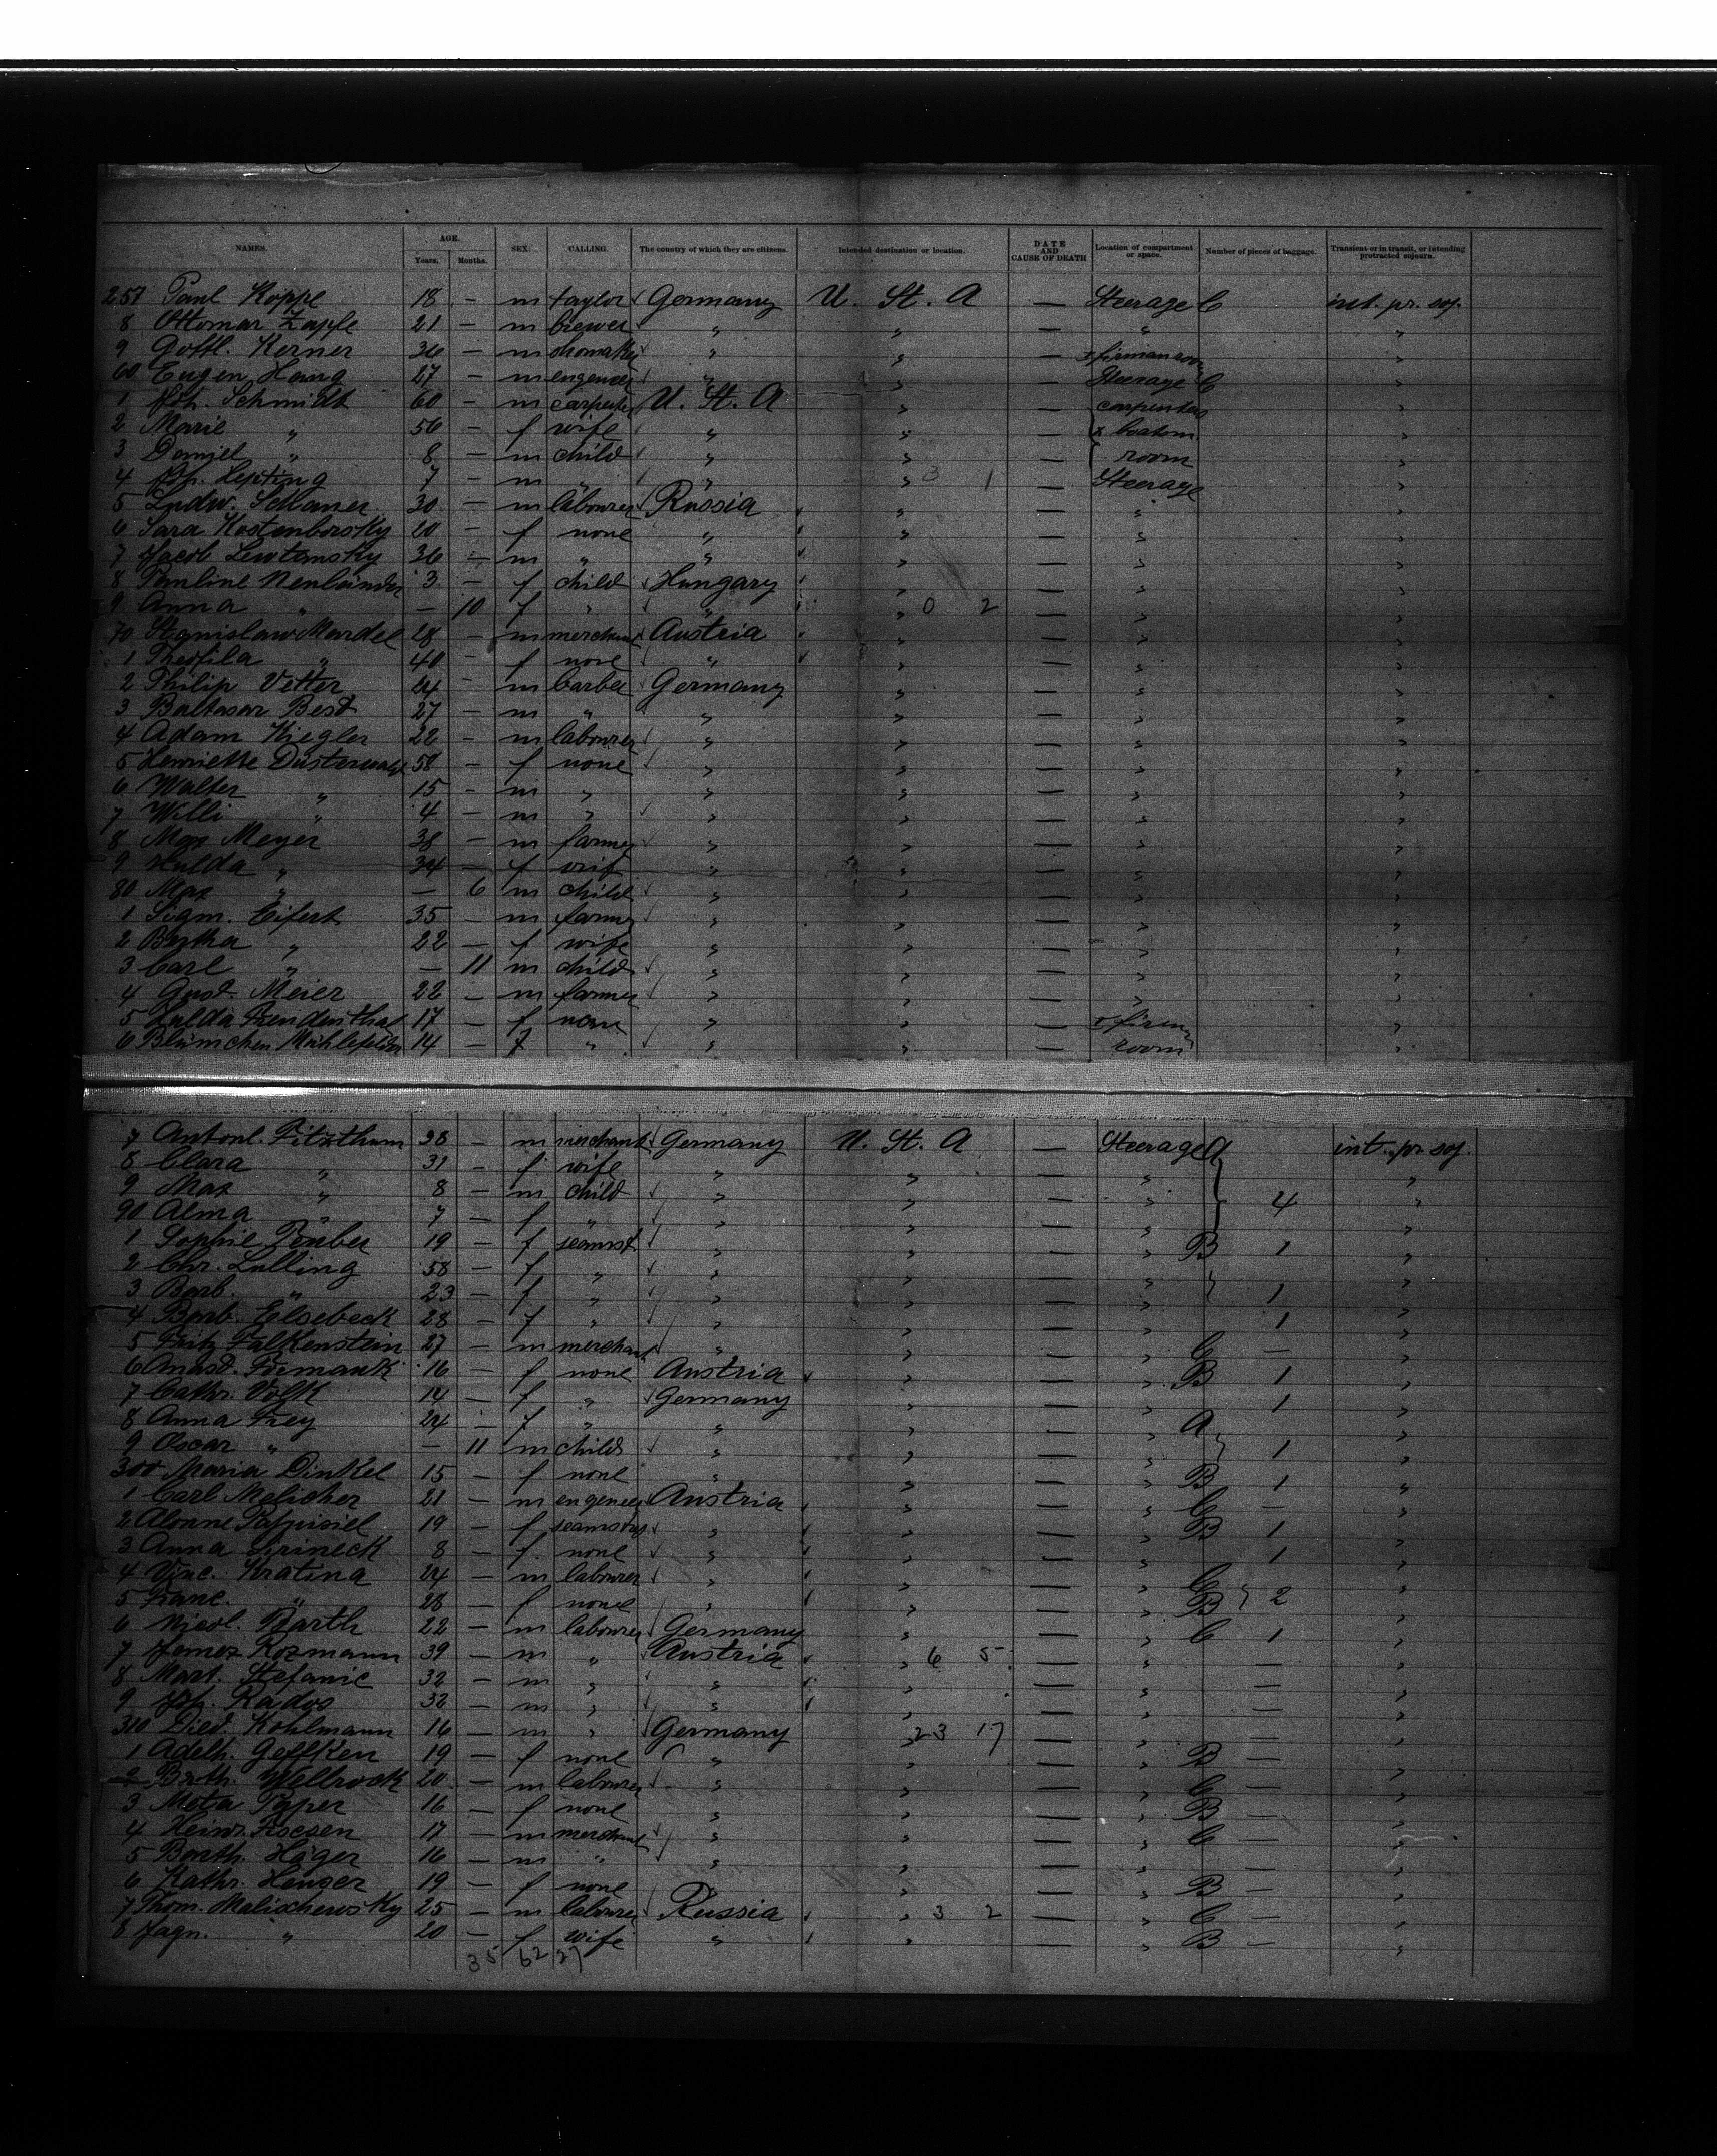 NAMES. AGE. SEX. CALLING. The country of which they are citizens. Intended destination or location. DATE AND CAUSE OF DEATH Location of compartment or space. Number of pieces of baggage. Transient or in transit, or intending protracted sojourn.
Years. Months.
257 Paul Koppe 18 — m taylor Germany U. St. A — Steerage C int. pr. soj.
8 Ottomar Zapfe 21 — m brewer " " — " "
9 Gottl. Kerner 36 — m " " — "
60 Eugen Haug 27 — m engeneer " " — Steerage C "
1 Joh. Schmidt 60 — m carpenter U. St. A " — carpenters "
2 Marie " 56 — f wife " " — & boatsm "
3 Daniel " 8 — m child " " — room "
4 Joh. Lepting 7 — m " " " 3 1 — Steerage "
5 Ludw. 30 — m labourer Russia " — " "
6 Sara Kostenborsky 20 — f none " " — " "
7 Jacob Lewtansky 36 — m " " " — " "
8 Pauline Neuländer 3 — f child Hungary " — " "
9 Anna " — 10 f " " " 0 2 — " "
70 Stanislaw Mardel 28 — m merchant Austria " — " "
1 Theofila " 40 — f none " " — " "
2 Philip Vetter 24 — m barber Germany " — " "
3 Baltasar Best 27 — m " " " — " "
4 Adam Kiegler 22 — m labourer " " — " "
5 Henriette 58 — f none " " — " "
6 Walter " 15 — m " " " — " "
7 Willi " 4 — m " " " — " "
8 Max Meyer 38 — m farmer " " — " "
9 Hulda " 34 — f wife " " — " "
80 Max " — 6 m child " " — " "
1 Sigm. Eifert 35 — m farmer " " — " "
2 Bertha " 22 — f wife " " — " "
3 Carl " — 11 m child " " — " "
4 Gust. Meier 22 — m farmer " " — " "
5 Freudenthal 17 — f none " " — "
6 Blümchen Mühlfelder 14 — f " " " — room "
7 Antonl. Fitzthum 38 — m merchant Germany U. St. A — Steerage A int. pr. soj.
8 Clara " 31 — f wife " " — " "
9 Max " 8 — m child " " — " 4 "
90 Alma " 7 — f " " " — " "
1 Sophie 19 — f seamst " " — " B 1 "
2 Chr. Lulling 58 — f " " " — " "
3 Barb. " 23 — f " " " — " 1 "
4 Barb. Elsebeck 28 — f " " " — " 1 "
5 Fritz Falkenstein 27 — m merchant " " — " C — "
6 Anast. 16 — f none Austria " — " B 1 "
7 Cathr. Volk 14 — f " Germany " — " 1 "
8 Anna Frey 24 — f " " " — " A "
9 Oscar " — 11 m child " " — " 1 "
300 Maria Dinkel 15 — f none " " — " B 1 "
1 Carl Melicher 21 — m engeneer Austria " — " C — "
2 19 — f seamstrs " " — " B 1 "
3 Anna 8 — f none " " — " 1 "
4 Vinc. Kratina 24 — m labourer " " — " C "
5 Franc. " 28 — f none " " — " B 2 "
6 Nicol. Barth 22 — m labourer Germany " — " C 1 "
7 Rozmann 39 — m " Austria " 6 5 — " — "
8 Mart. Stefanic 32 — m " " " — " — "
9 Joh. Rados 32 — m " " " — " — "
310 Died. Kohlmann 16 — m " Germany " 23 17 — " — "
1 Adelh. Geffken 19 — f none " " — " B — "
2 Wellbrock 20 — m labourer " " — " C — "
3 Meta Paper 16 — f none " " — " B — "
4 Heinr. 17 — m merchant " " — " C — "
5 Barth. Häger 16 — m " " " — " — "
6 Kathr. Henser 19 — f none " " — " B — "
7 Thom. Malischewsky 25 — m labourer Russia " 3 2 — " C — "
8 Jagn. " 20 — f wife " " — " B — "
35 62 27